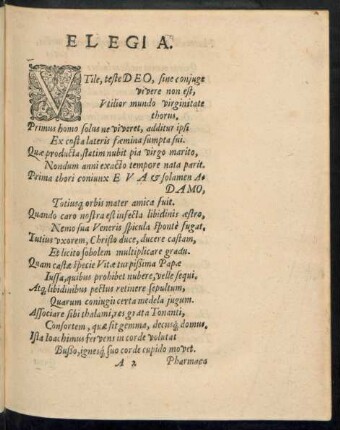 ELEGIA.
VTile, teste DEO, sine conjuge
vivere non est,
Vtilior mundo virginitate
thorus,
Primus homo solus ne viveret, additur ipsi
Ex costa lateris fœmina sumpta sui.
Quæ producta statim nubit pia virgo marito,
Nondum anni exacto tempore nata parit.
Prima thori coniunx EVA & solamen A-
DAMO,
Totiusq; orbis mater amica fuit.
Quando caro nostra est infecta libidinis œstro,
Nemo sua Veneris spicula spontè fugat,
Tutius vxorem, Christo duce, ducere castam,
Et licito sobolem multiplicare gradu.
Quam castæ specie Vitæ turpissima Papæ
Iussa, quibus prohibet nubere, velle sequi,
Atq; libidinibus pectus retinere sepultum,
Quarum coniugii certa medela jugum.
Associare sibi thalami, res grata Tonanti,
Consortem, quæ sit gemma, decusq; domus,
Ista Ioachimus fervens in corde volutat
Busso, igneq; suo corde cupido movet.
A 2 Pharmaca